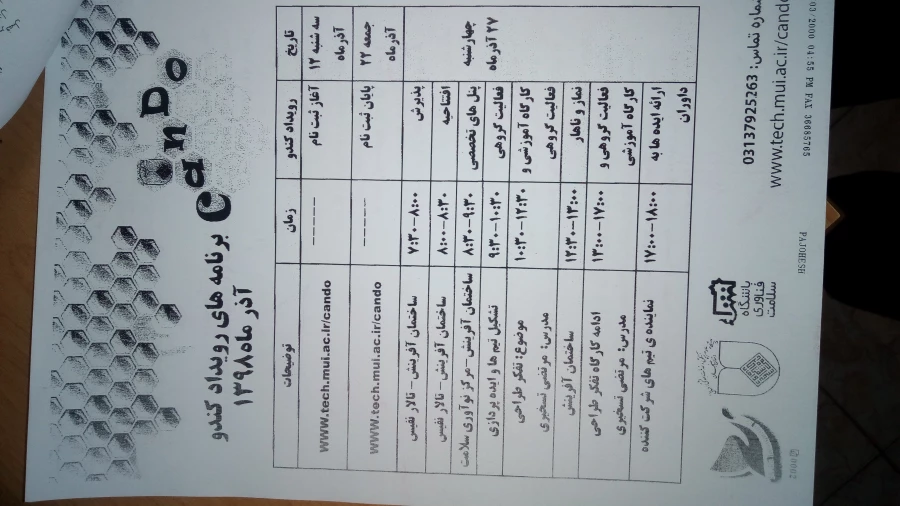 03/2000 04:55 PM FAX 36685765 PAJOHESH
0002
CanDo
برنامه های رویداد کندو
آذر ماه ۱۳۹۸
تاریخ رویداد کندو زمان توضیحات
سه شنبه ۱۲ آذرماه آغاز ثبت نام ----- www.tech.mui.ac.ir/cando
جمعه ۲۲ آذرماه پایان ثبت نام ----- www.tech.mui.ac.ir/cando
چهارشنبه ۲۷ آذرماه
پذیرش ۷:۳۰-۸:۰۰ ساختمان آفرینش- تالار نفیس
افتتاحیه ۸:۰۰-۸:۳۰ ساختمان آفرینش- تالار نفیس
پنل های تخصصی ۸:۳۰-۹:۳۰ ساختمان آفرینش-مرکز نوآوری سلامت
فعالیت گروهی ۹:۳۰-۱۰:۳۰ تشکیل تیم ها و ایده پردازی
کارگاه آموزشی و فعالیت گروهی ۱۰:۳۰-۱۲:۳۰ موضوع: تفکر طراحی
مدرس: مرتضی تسخیری
نماز و ناهار ۱۲:۳۰-۱۳:۰۰ ساختمان آفرینش
فعالیت گروهی و کارگاه آموزشی ۱۳:۰۰-۱۷:۰۰ ادامه کارگاه تفکر طراحی
مدرس: مرتضی تسخیری
ارائه ایده ها به داوران ۱۷:۰۰-۱۸:۰۰ نماینده ی تیم های شرکت کننده
شماره تماس: 03137925263
www.tech.mui.ac.ir/cando
باشگاه
فناوری
سلامت